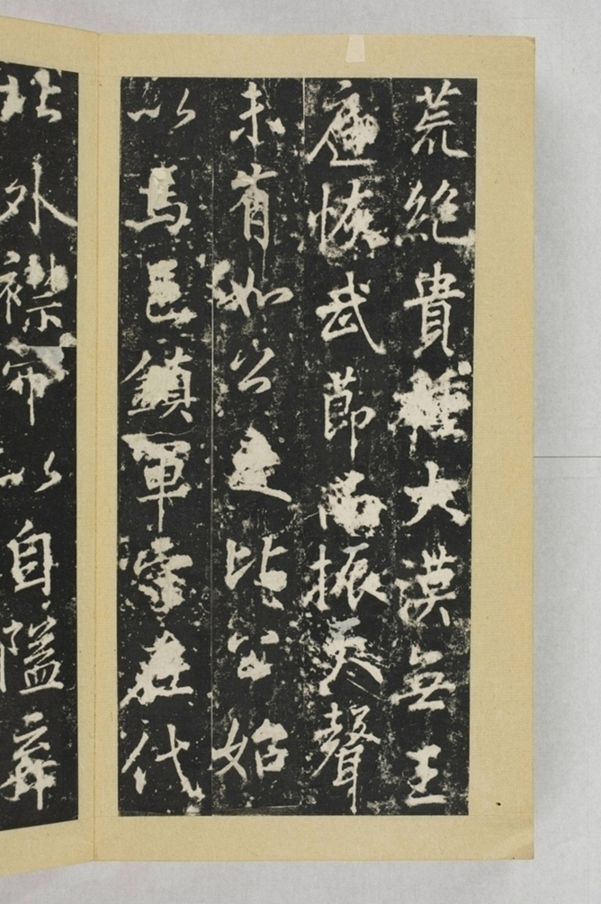 荒絶貴種大漠無王
庭恢武節而振天聲
未有如公之比公始
以馬邑鎮軍守在代
北外襟帶以自隘棄